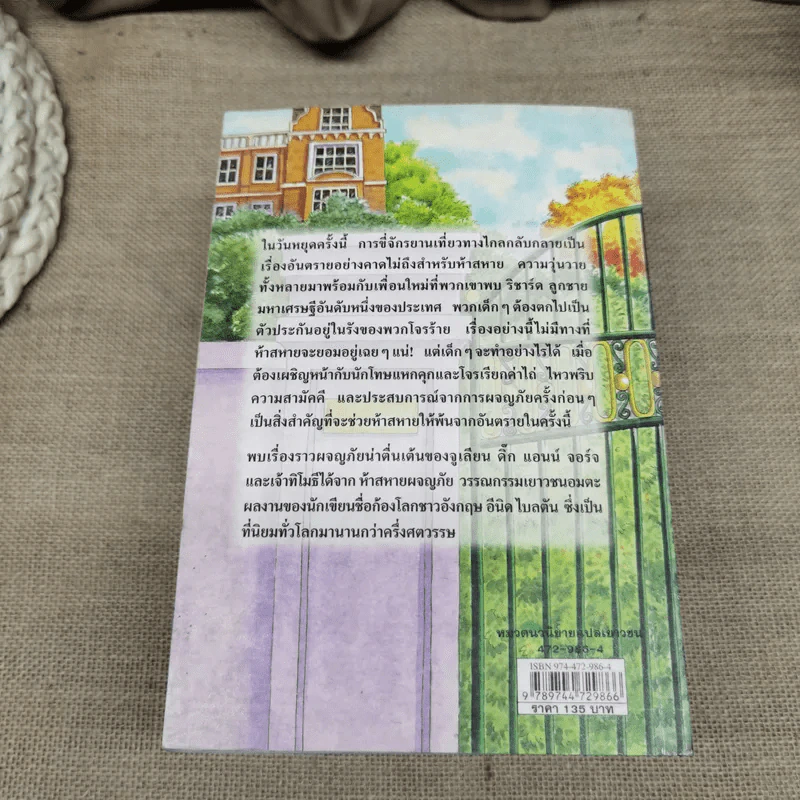 ในวันหยุดครั้งนี้ การขี่จักรยานเที่ยวทางไกลกลับกลายเป็น
เรื่องอันตรายอย่างคาดไม่ถึงสำหรับห้าสหาย ความวุ่นวาย
ทั้งหลายมาพร้อมกับเพื่อนใหม่ที่พวกเขาพบ ริชาร์ด ลูกชาย
มหาเศรษฐีอันดับหนึ่งของประเทศ พวกเด็กๆ ต้องตกไปเป็น
ตัวประกันอยู่ในรังของพวกโจรร้าย เรื่องอย่างนี้ไม่มีทางที่
ห้าสหายจะยอมอยู่เฉยๆ แน่! แต่เด็กๆ จะทำอย่างไรได้ เมื่อ
ต้องเผชิญหน้ากับนักโทษแหกคุกและโจรเรียกค่าไถ่ ไหวพริบ
ความสามัคคี และประสบการณ์จากการผจญภัยครั้งก่อนๆ
เป็นสิ่งสำคัญที่จะช่วยห้าสหายให้พ้นจากอันตรายในครั้งนี้
พบเรื่องราวผจญภัยน่าตื่นเต้นของจูเลียน ดิ๊ก แอนน์ จอร์จ
และเจ้าทิโมธีได้จาก ห้าสหายผจญภัย วรรณกรรมเยาวชนอมตะ
ผลงานของนักเขียนชื่อก้องโลกชาวอังกฤษ อีนิด ไบลตัน ซึ่งเป็น
ที่นิยมทั่วโลกมานานกว่าครึ่งศตวรรษ
หมวดนวนิยายแปลเยาวชน
472-986-4
ISBN 974-472-986-4
9 789744 729866
ราคา 135 บาท